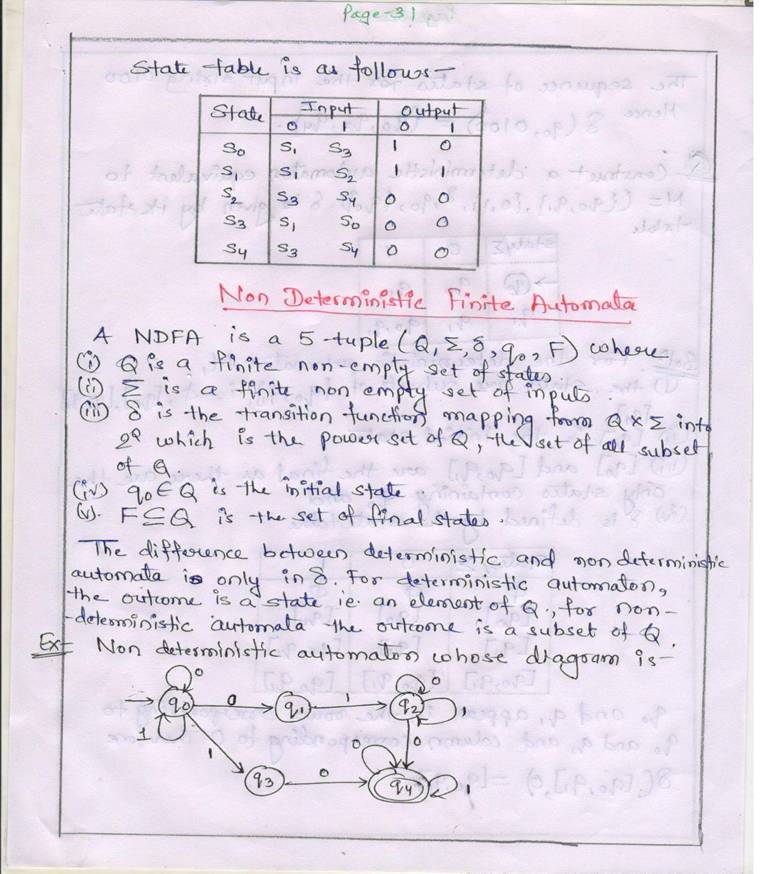 Page-31
State table is as follows-
State Input Output
0 1 0 1
S0 S1 S3 1 0
S1 S1 S2 1 1
S2 S3 S4 0 0
S3 S1 S0 0 0
S4 S3 S4 0 0
Non Deterministic Finite Automata
A NDFA is a 5-tuple (Q, Σ, δ, q0, F) where
(i) Q is a finite non-empty set of states.
(ii) Σ is a finite non empty set of inputs.
(iii) δ is the transition function mapping from Q×Σ into
2^Q which is the power set of Q, the set of all subset
of Q.
(iv) q0 ∈ Q is the initial state.
(v). F ⊆ Q is the set of final states.
The difference between deterministic and non deterministic
automata is only in δ. For deterministic automaton,
the outcome is a state ie an element of Q., for non-
-deterministic automata the outcome is a subset of Q.
Ex- Non deterministic automaton whose diagram is-
0 0
q0 0 q1 1 q2 1
1 1 0 0
q3 0 q4 1